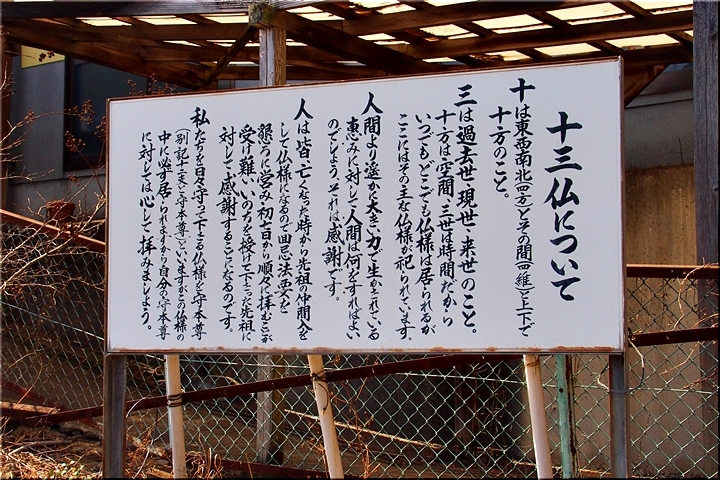 十三仏について
十は東西南北(四方)とその間(四維)と上下で
十方のこと。
三は過去世・現世・来世のこと。
十方は空間・三世は時間だから
いつでもどこでも仏様は居られるが
ここにはその主な仏様が祀られています。
人間より遥かに大きい力で生かされている
恵みに対して人間は何をすればよい
のでしょう。それは感謝です。
人は皆亡くなった時から先祖の仲間入を
して仏様になるので回忌法要を
懇ろに営み初七日から順々に拝むことが
受け難いいのちを授けて下さった先祖に
対して感謝することになるのです。
私たちを日々守って下さる仏様を守本尊
(別記十二支と守本尊)といいますがこの仏様の
中に必ず居られますから自分の守本尊
に対しては心して拝みましょう。